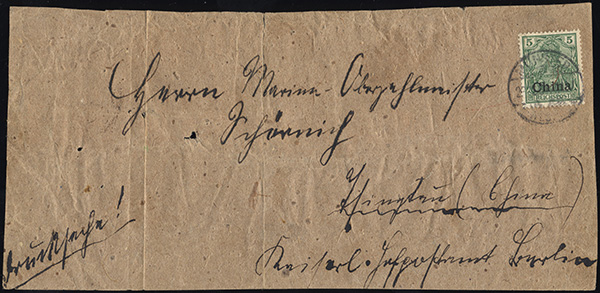 5 5
China
Herrn Marine-Oberzahlmeister
Schörnich
Tsingtau (China)
Drucksache!
Kaiserl. Hofpostamt Berlin